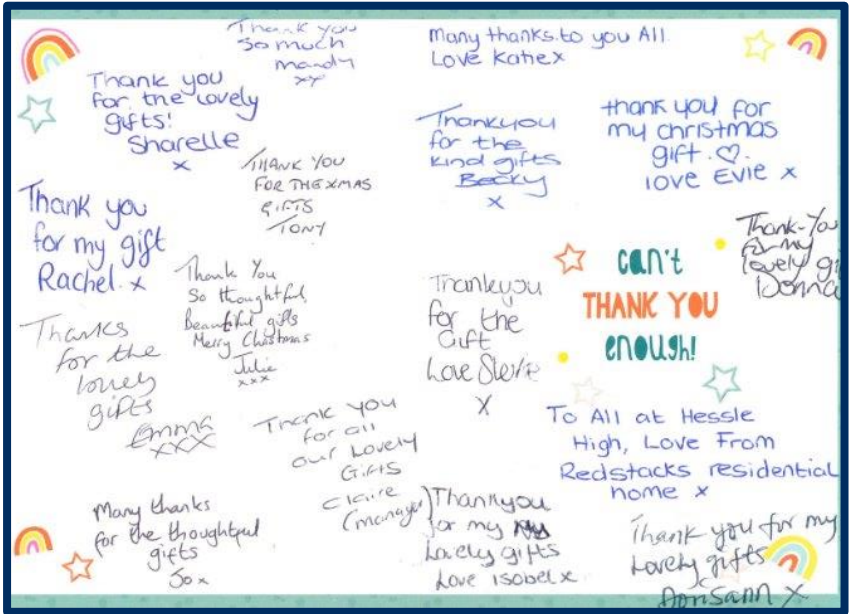 Thank you
so much
mandy
xx
Many thanks to you All
Love Katie x
Thank you
for the lovely
gifts!
Sharelle
x
Thankyou
for the
kind gifts
Becky
x
thank you for
my christmas
gift. ♡.
love Evie x
THANK YOU
FOR THE XMAS
GIFTS
TONY
Thank you
for my gift
Rachel. x
Thank-You
for my
lovely gi
Donna
Thank You
So thoughtful,
Beautiful gifts
Merry Christmas
Julie
xxx
can't
THANK YOU
enough!
Thankyou
for the
Gift
Love
X
Thanks
for the
lovely
gifts
Emma
XXX
Thank you
for all
our Lovely
Gifts
Claire
(manager)
To All at Hessle
High, Love From
Redstacks residential
home x
Many thanks
for the thoughtful
gifts
Jo x
Thankyou
for my
Lovely gifts
Love Isobel x
Thank you for my
Lovely gifts
X